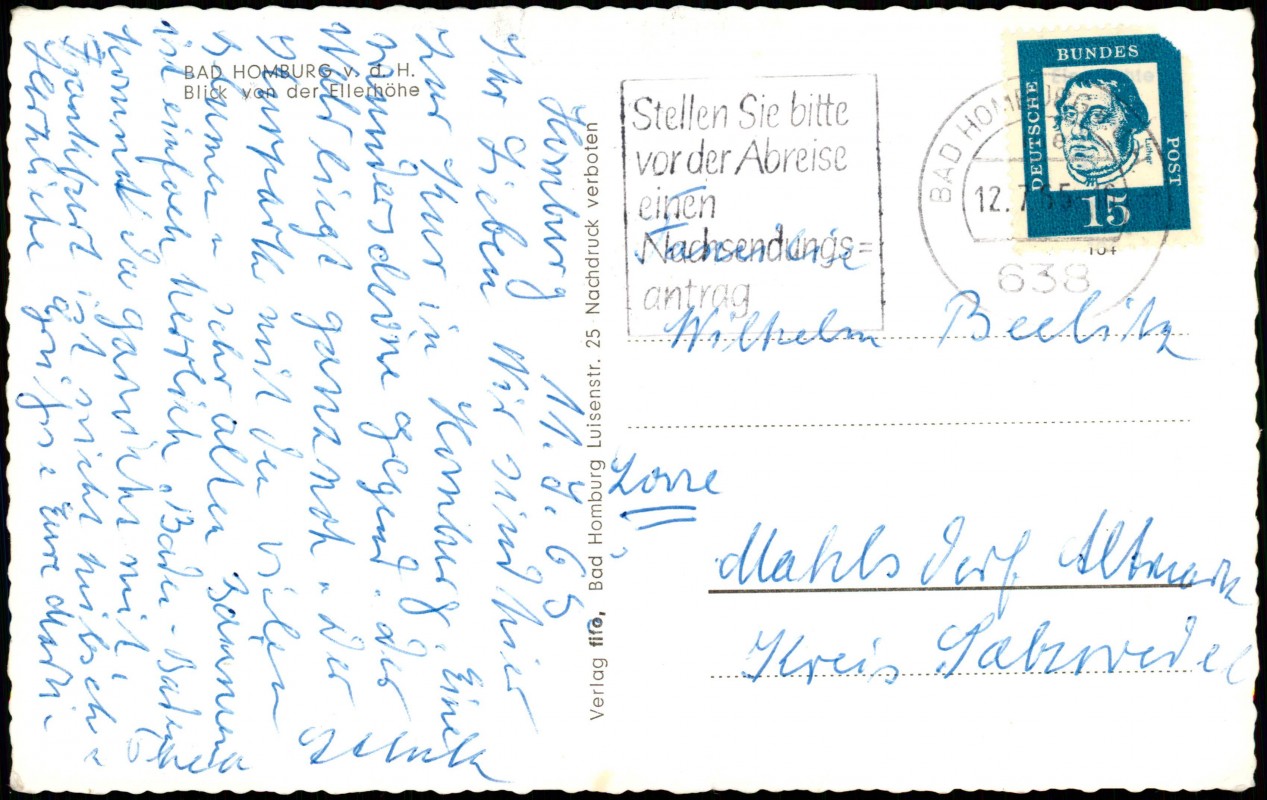 BAD HOMBURG v. d. H.
Blick von der Ellerhöhe
Homburg 11.7.65
Ihr Lieben Wir sind hier
zur Kur in Homburg. Eine
wunderschöne Gegend. Der
liegt ganz nah. Der
Kurpark mit den vielen
u sehr alten Bäumen
ist einfach herrlich. Baden-Baden
kommt da garnicht mit.
Frankfurt ist nicht hübsch.
Herzliche Grüsse Eure
Verlag fifo, Bad Homburg Luisenstr. 25 Nachdruck verboten
Stellen Sie bitte
vor der Abreise
einen
Nachsendungs=
antrag
BAD HOMBURG
12.7.65
638
DEUTSCHE BUNDES POST
Luther
15
Familie
Wilhelm Beelitz
Mahlsdorf Altmark
Kreis Salzwedel